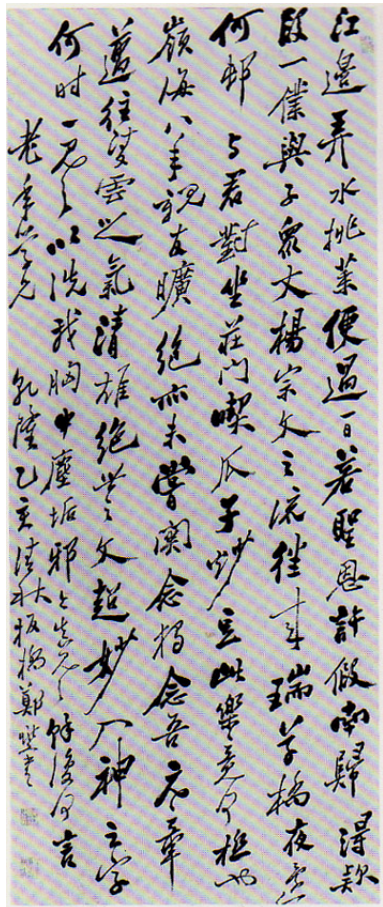 江邊弄水挑菜便過一日若聖恩許假南歸得款
段一僕與子衆丈楊宗文之流往來瑞草橋夜還
何邨與君對坐莊門喫瓜子炒豆此樂竟何極也
嶺海八年親友曠絕亦未嘗關念獨念吾元章
邁往凌雲之氣清雄絕世之文超妙入神之字
何時一見之以洗我胸中塵垢邪今真見之餘復何言
老年學兄 乾隆乙亥清秋板橋鄭燮書